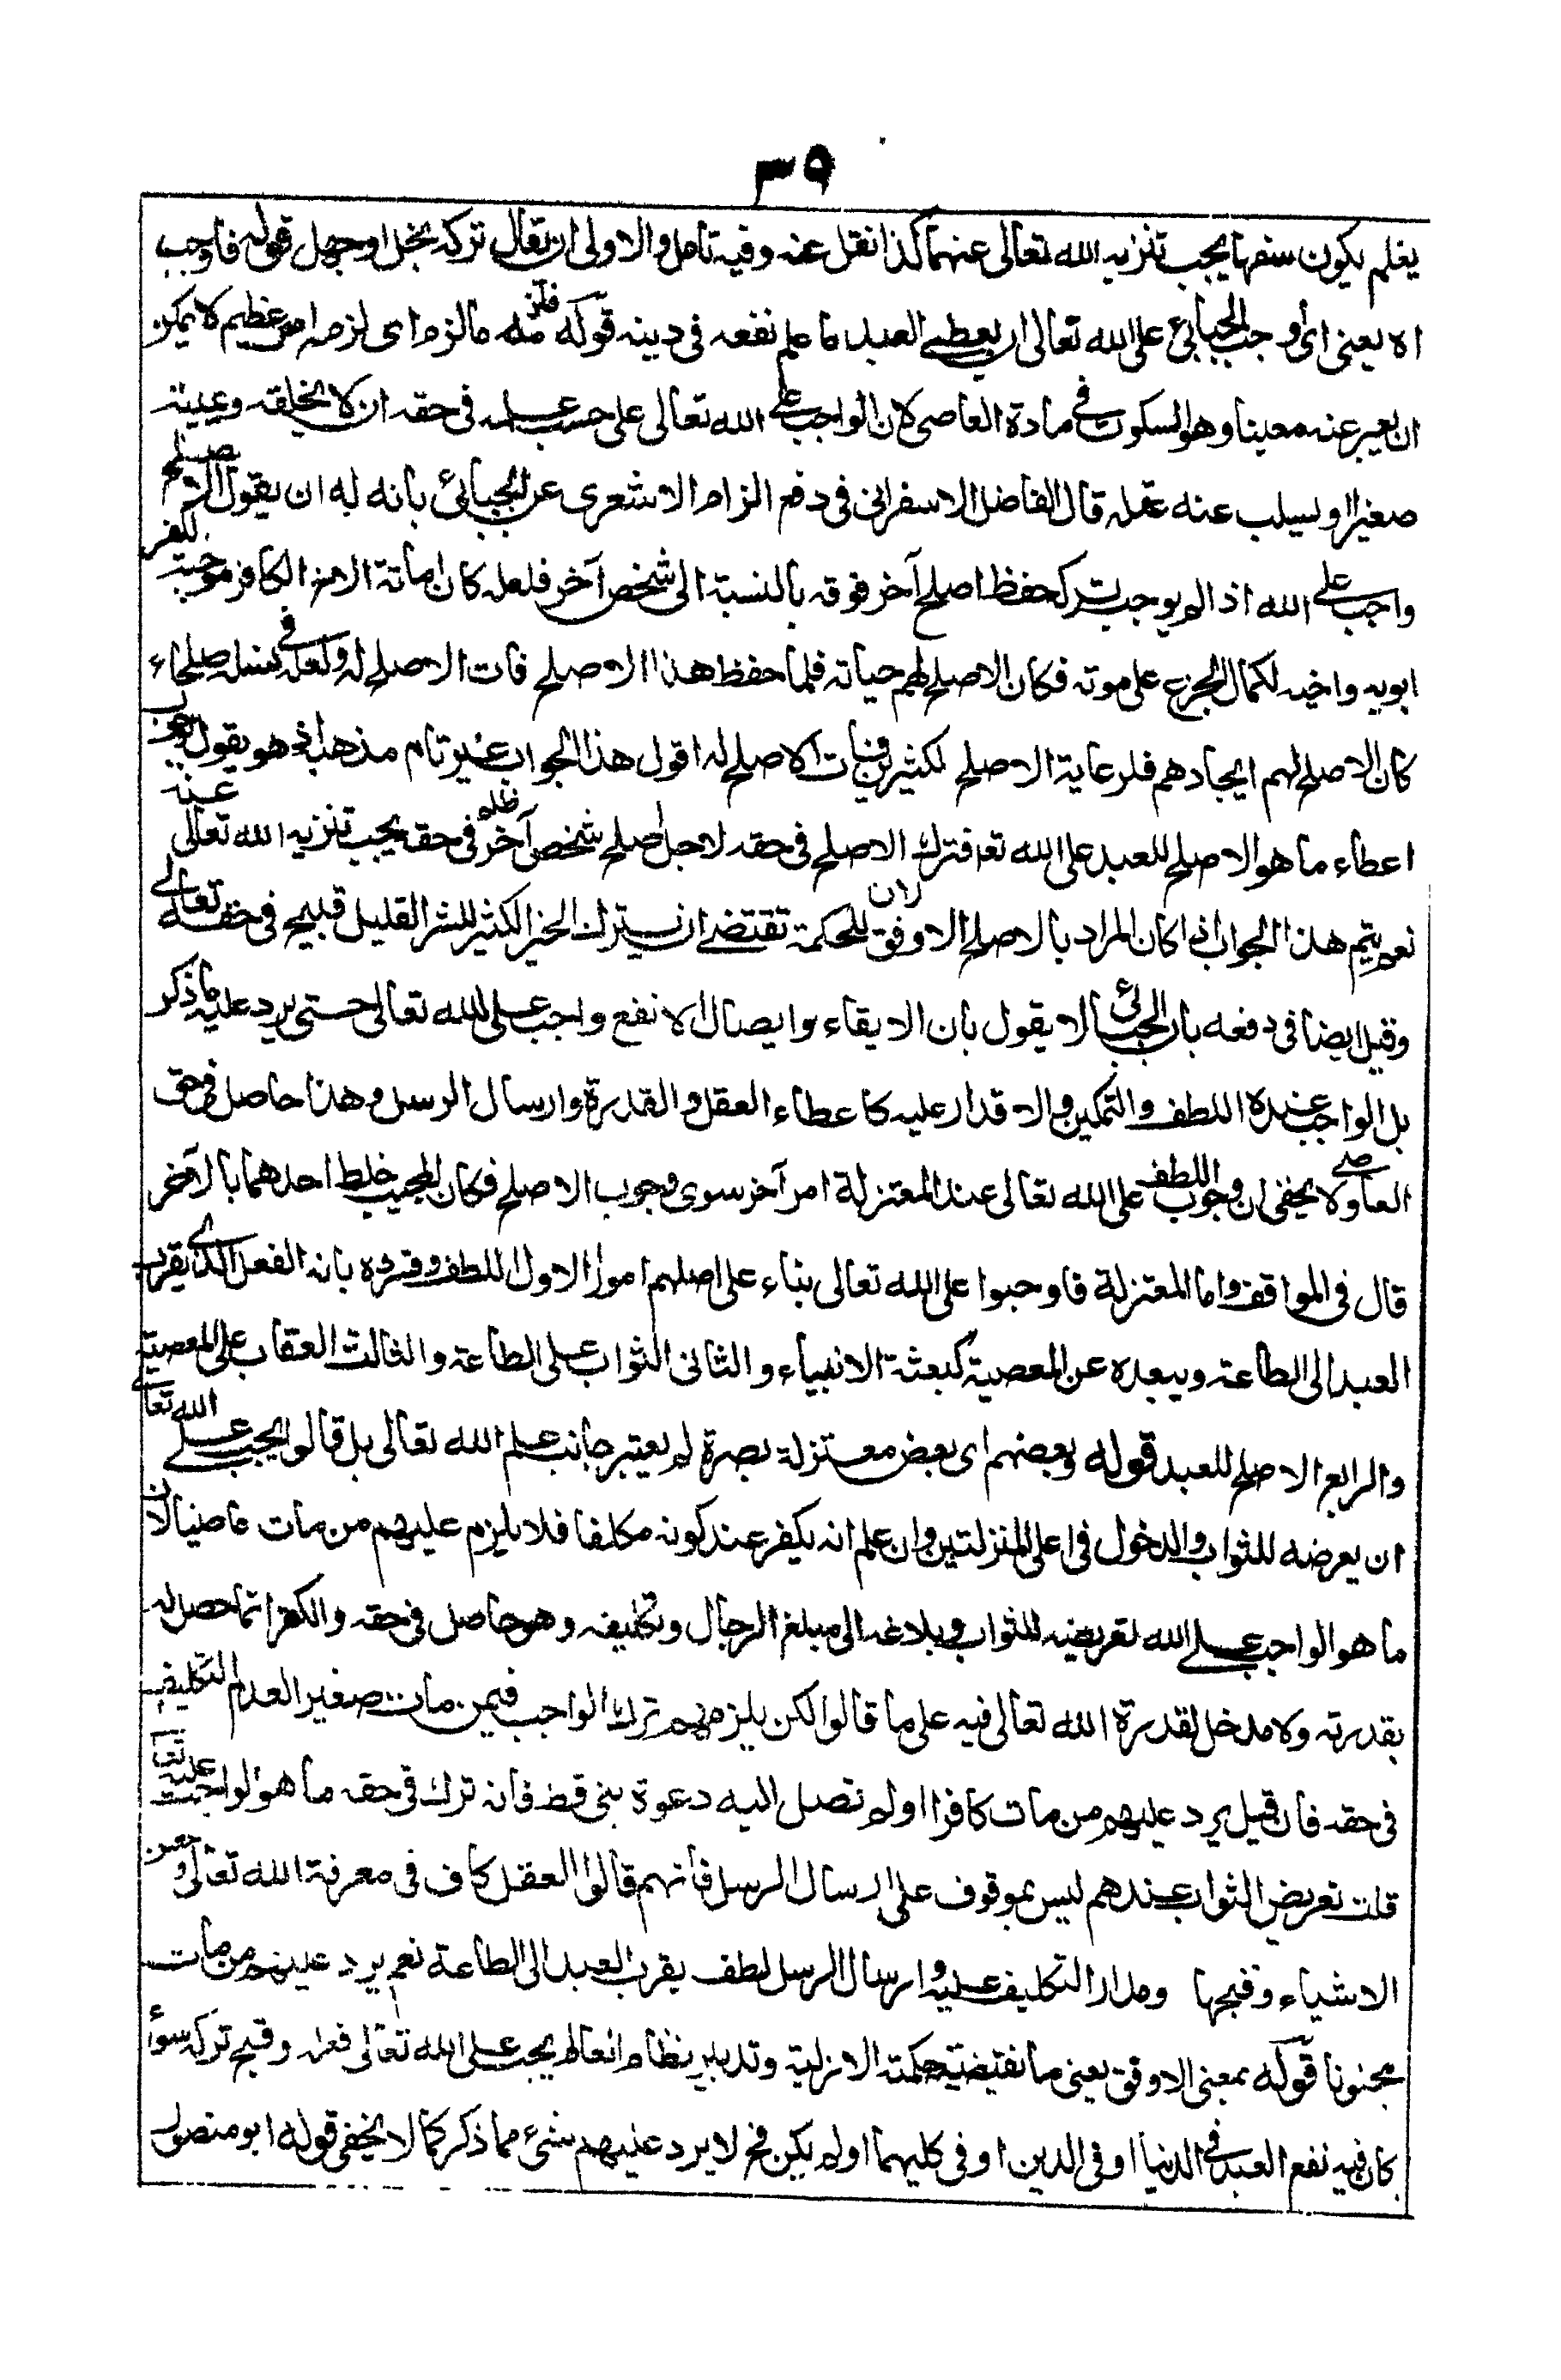 ٣٩
يعلم يكون سفها يجب تنزيه الله تعالى عنهما كذا نقل عنه وفيه تامل والاولى ان يقال تركه بخل او جهل قوله فاوجب
اه يعنى اى اوجب الجبائى على الله تعالى ان يعطى العبد ما علم نفعه فى دينه قوله فلزمه ما لزم اى لزمه امر عظيم لا يمكن
ان يعبر عنه معينا وهو السكوت فى مادة العاصى لان الواجب على الله تعالى على حسب علمه فى حقه ان لا يخلقه وعيته
صغيرا او يسلب عنه عقله قال الفاضل الاسفرانى فى دفع الزام الاشعرى عن الجبائى بانه له ان يقول الاصلح
واجب على الله اذا لم يوجب تركه حفظ اصلح آخر فوقه بالنسبة الى شخص آخر فلعله كان اماتة الاخ الكافر موجبة لكفر
ابويه واخيه لكمال الجزع على موته فكان الاصلح لهم حياته فلما حفظ هذا الاصلح فات الاصلح له ولعله فى نسله صلحاء
كان الاصلح لهم ايجادهم فلرعاية الاصلح لكثيرين فات الاصلح له اقول هذا الجواب غير تام مذهبا فى هو يقول بوجوب
اعطاء ما هو الاصلح للعبد على الله تعا فترك الاصلح فى حقه لاجل اصلح شخص آخر ظلم فى حقه يجب تنزيه الله تعالى عنه
نعم يتم هذا الجواب اذا كان المراد بالاصلح الاوفق للحكمة لان تقتضى ان يترك الخير الكثير للشر القليل قبيح فى حقه تعالى
وقيل ايضا فى دفعه بان الجبائى لا يقول بان الايقاء وايصال الانفع واجب على الله تعالى حتى يرد عليه ما ذكر
بل الواجب عنده اللطف والتمكين والاقدار عليه كاعطاء العقل والقدرة وارسال الرسل وهذا حاصل فى حق
العاصى ولا يخفى ان وجوب اللطف على الله تعالى عند المعتزلة امر آخر سوى وجوب الاصلح فكان المجيب خلط احدهما بالآخر
قال فى المواقف واما المعتزلة فاوجبوا على الله تعالى بناء على اصلهم امورا الاول اللطف وفسروه بانه الفعل الذى يقرب
العبد الى الطاعة ويبعده عن المعصية كبعثة الانبياء والثانى الثواب على الطاعة والثالث العقاب على المعصية
والرابع الاصلح للعبد قوله وبعضهم اى بعض معتزلة بصرة لم يعتبر جانب علم الله تعالى بل قالوا يجب على الله تعا
ان يعرضه للثواب والدخول فى اعلى المنزلتين وان علم انه يكفر عند كونه مكلفا فلا يلزم عليهم من مات عاصيا لان
ما هو الواجب على الله تعريضه للثواب وبلاغه الى مبلغ الرجال وتكليفه وهو حاصل فى حقه والكفر انما حصل له
بقدرته ولا مدخل لقدرة الله تعالى فيه على ما قالوا لكن يلزمهم ترك الواجب فيمن مات صغير العدم التكليف
فى حقه فان قيل يرد عليهم من مات كافرا او لم تصل اليه دعوة بنى قط فانه ترك فى حقه ما هو الواجب عليه تعا
قلت تعريض الثواب عندهم ليس بموقوف على ارسال الرسل فانهم قالوا العقل كاف فى معرفة الله تعالى وحسن
الاشياء وقبحها ومدار التكليف عليه وارسال الرسل لطف يقرب العبد الى الطاعة نعم يرد عليهم من مات
مجنونا قوله بمعنى الاوفق يعنى ما تقتضيه حكمته الازلية وتدبير نظام العالم يجب على الله تعالى فعله وقبح تركه سواء
كان فيه نفع العبد فى الدنيا او فى الدين او فى كليهما او لم يكن فح لا يرد عليهم شئ مما ذكر كما لا يخفى قوله ابو منصور